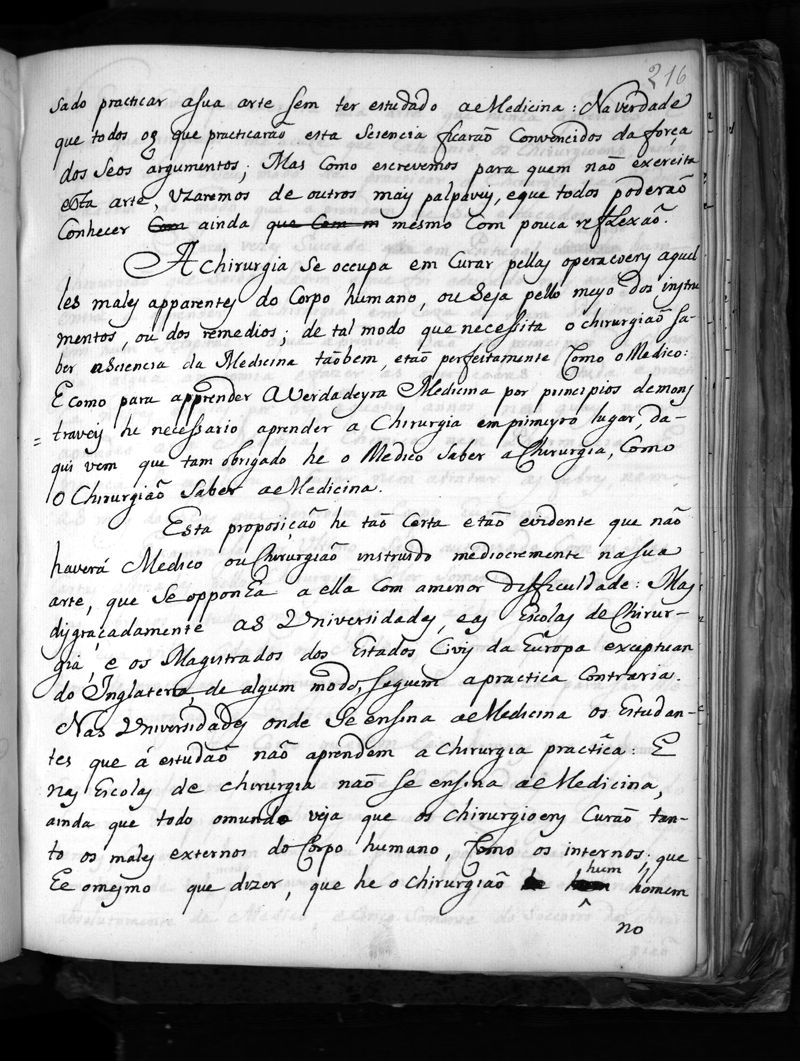 216
sado practicar asua arte sem ter estudado aeMedicina: Na verdade
que todos os que practicaraõ esta Sciencia ficaraõ Convencidos da forca
dos Seos argumentos; Mas Como escrevemos para quem naõ exercita
esta arte, Vzaremos de outros mais palpaveis, eque todos poderaõ
Conhecer Com ainda que Com m mesmo Com pouca reflexaõ.
A Chirurgia Se occupa em Curar pellas operacoens aquel
les males apparentes do Corpo humano, ou Seja pello meyo dos instru
mentos, ou dos remedios; de tal modo que necessita o chirurgiaõ sa-
ber aSciencia da Medicina taõbem, etaõ perfeitamente Como oMedico:
E como para apprender aVerdadeyra Medicina por principios demons
traveis he necessario aprender a Chirurgia em primeyro lugar, da-
qui vem que tam obrigado he o Medico Saber aChirurgia, Como
o Chirurgiaõ Saber aeMedicina.
Esta proposiçaõ he taõ Certa etaõ evidente que naõ
haverá Medico ou Chirurgiaõ instruido mediocremente nasua
arte, que Se opponha a ella Com amenor difficuldade: Mas
disgraçadamente as Vniversidades, eas Escolas de Chirur-
gia, e os Magistrados dos Estados Civis da Europa exceptuan
do Inglaterra, de algum modo, seguem apractica Contraria.
Nas Vniversidades onde Se ensina aeMedicina os Estudan-
tes que á estudaõ naõ aprendem a Chirurgia practica: E
nas Escolas de chirurgia naõ se ensina aeMedicina,
ainda que todo omundo veja que os Chirurgioens Curaõ tan-
to os males externos do Corpo humano, Como os internos; que
he omesmo que dizer, que he o Chirurgiaõ hum homem
no